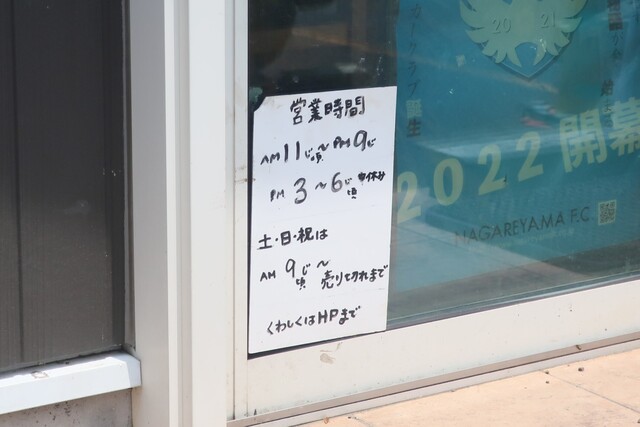 営業時間
AM11じ頃〜PM9じ
PM 3〜6じ頃 中休み
土・日・祝は
AM 9じ頃〜売り切れまで
くわしくはHPまで
20 21
2022 開幕
NAGAREYAMA F.C